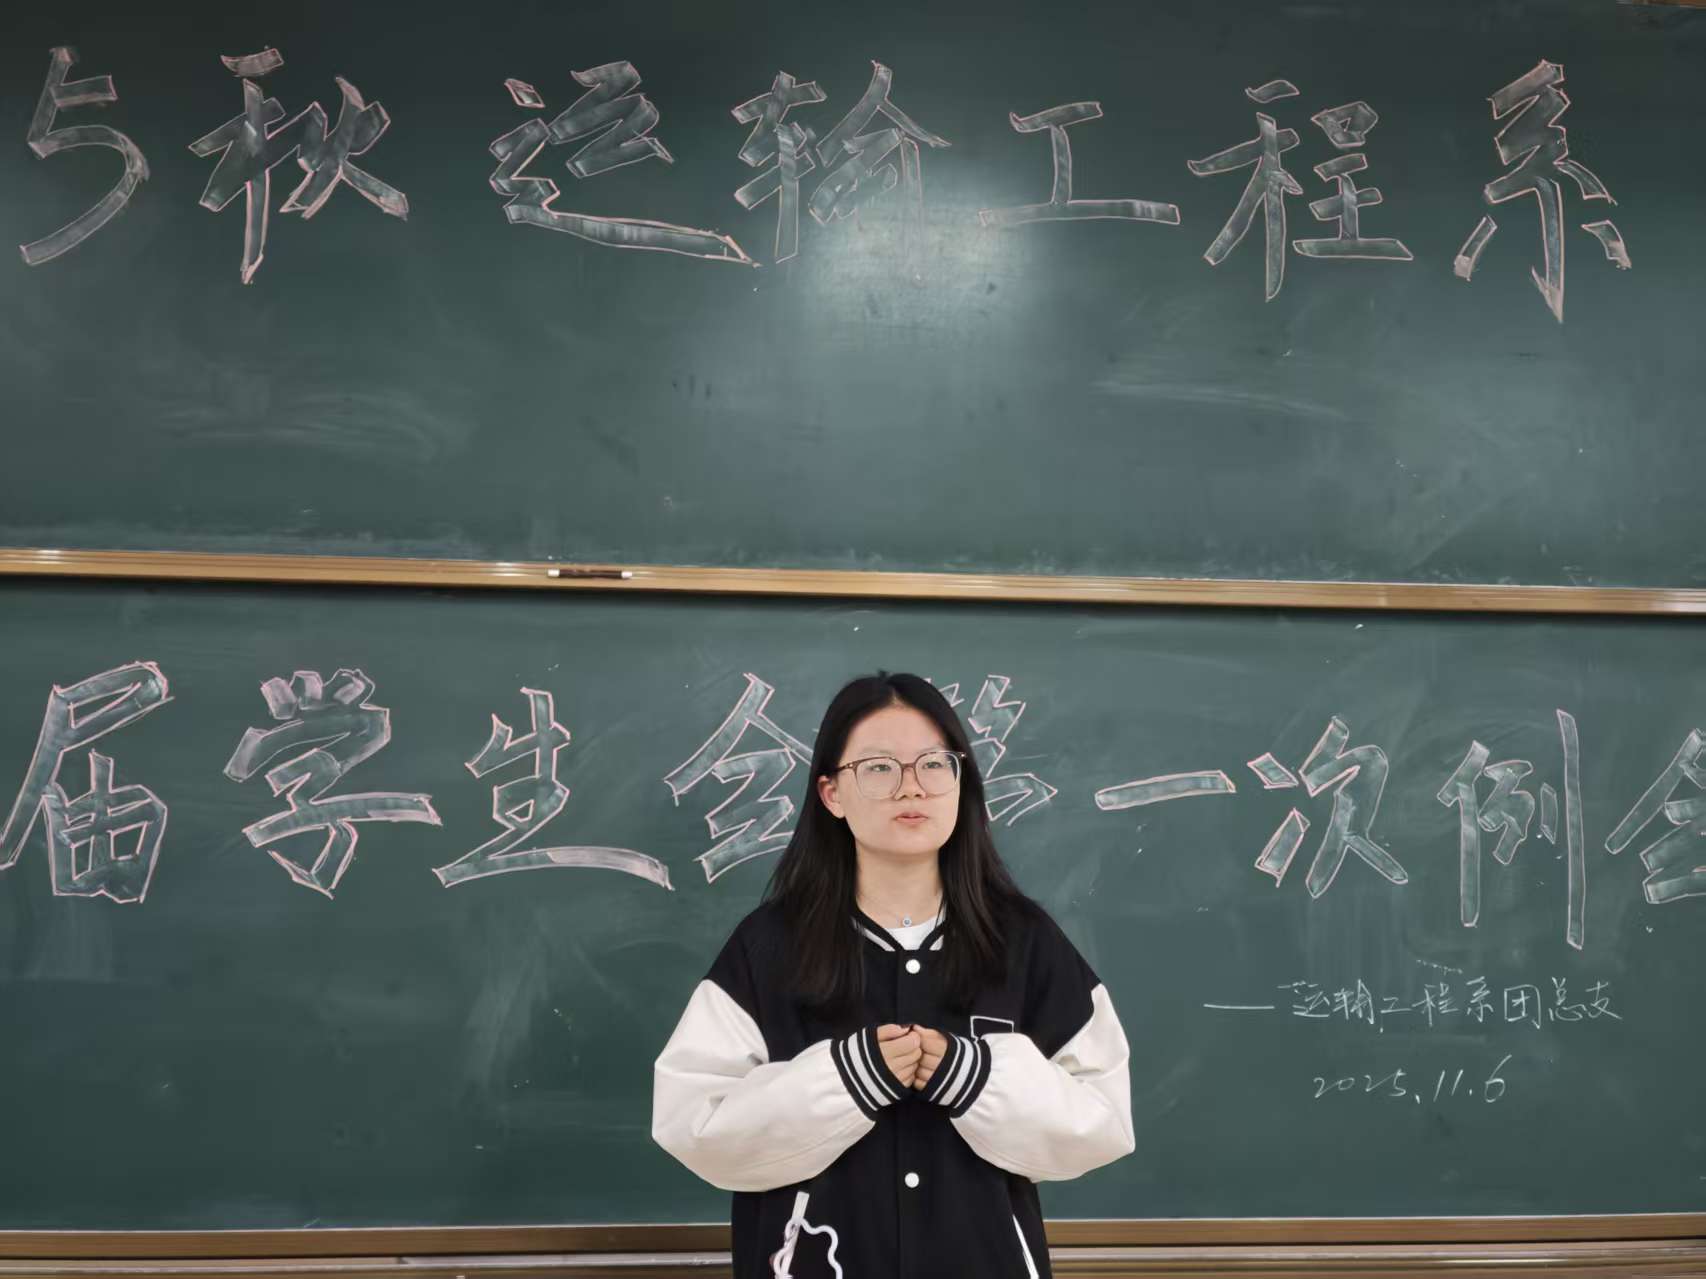 5秋运输工程系
届学生会第一次例会
——运输工程系团总支
2025.11.6